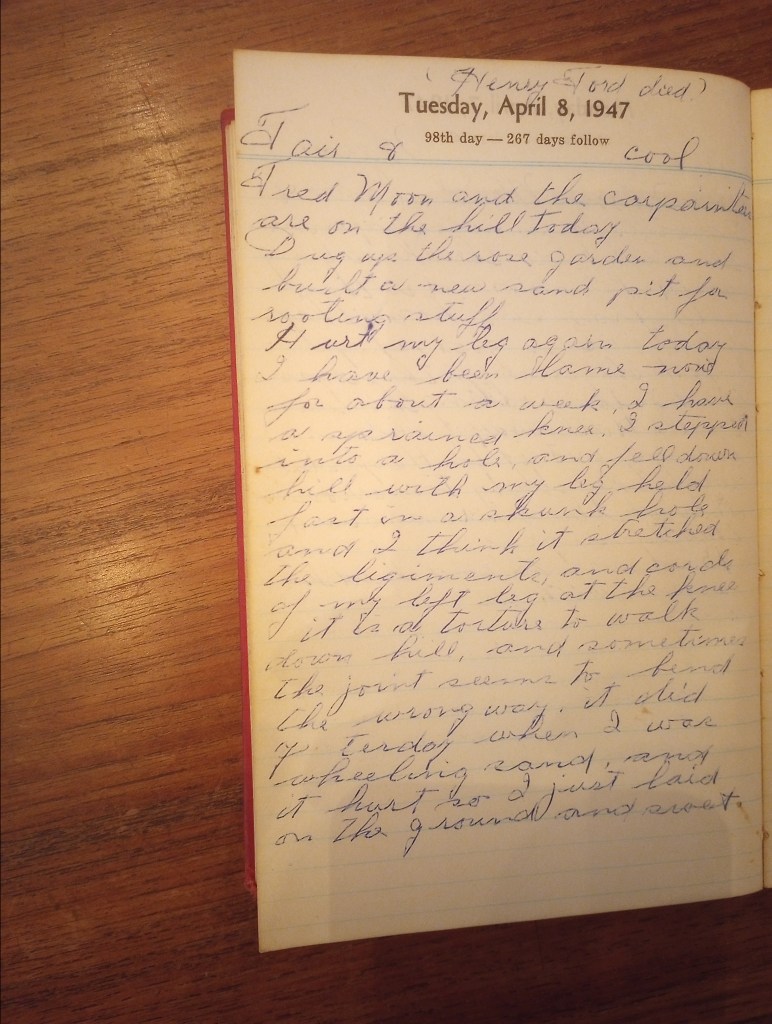 (Henry Ford died)
Tuesday, April 8, 1947
98th day — 267 days follow
Fair & cool
Fred Moon and the carpainters
are on the hill today.
Dug up the rose garden and
built a new sand pit for
rooting stuff
Hurt my leg again today
I have been lame now
for about a week, I have
a sprained knee. I stepped
into a hole, and fell down
hill with my leg held
fast in a skunk hole
and I think it stretched
the ligiments, and cords
of my left leg at the knee
it is a torture to walk
down hill, and sometimes
the joint seems to bend
the wrong way. it did
yesterday when I was
wheeling sand, and
it hurt so I just laid
on the ground and swet.